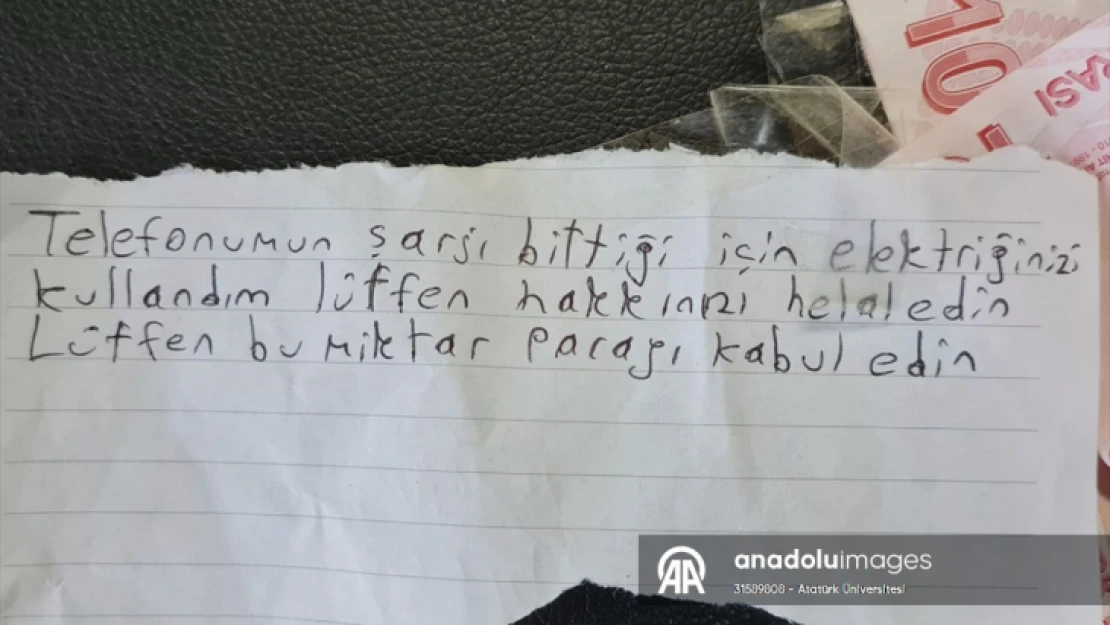 Telefonumun şarjı bittiği için elektriğinizi
kullandım lütfen hakkınızı helal edin
Lütfen bu miktar parayı kabul edin
10
ASI
anadoluimages
31589808 - Atatürk Üniversitesi